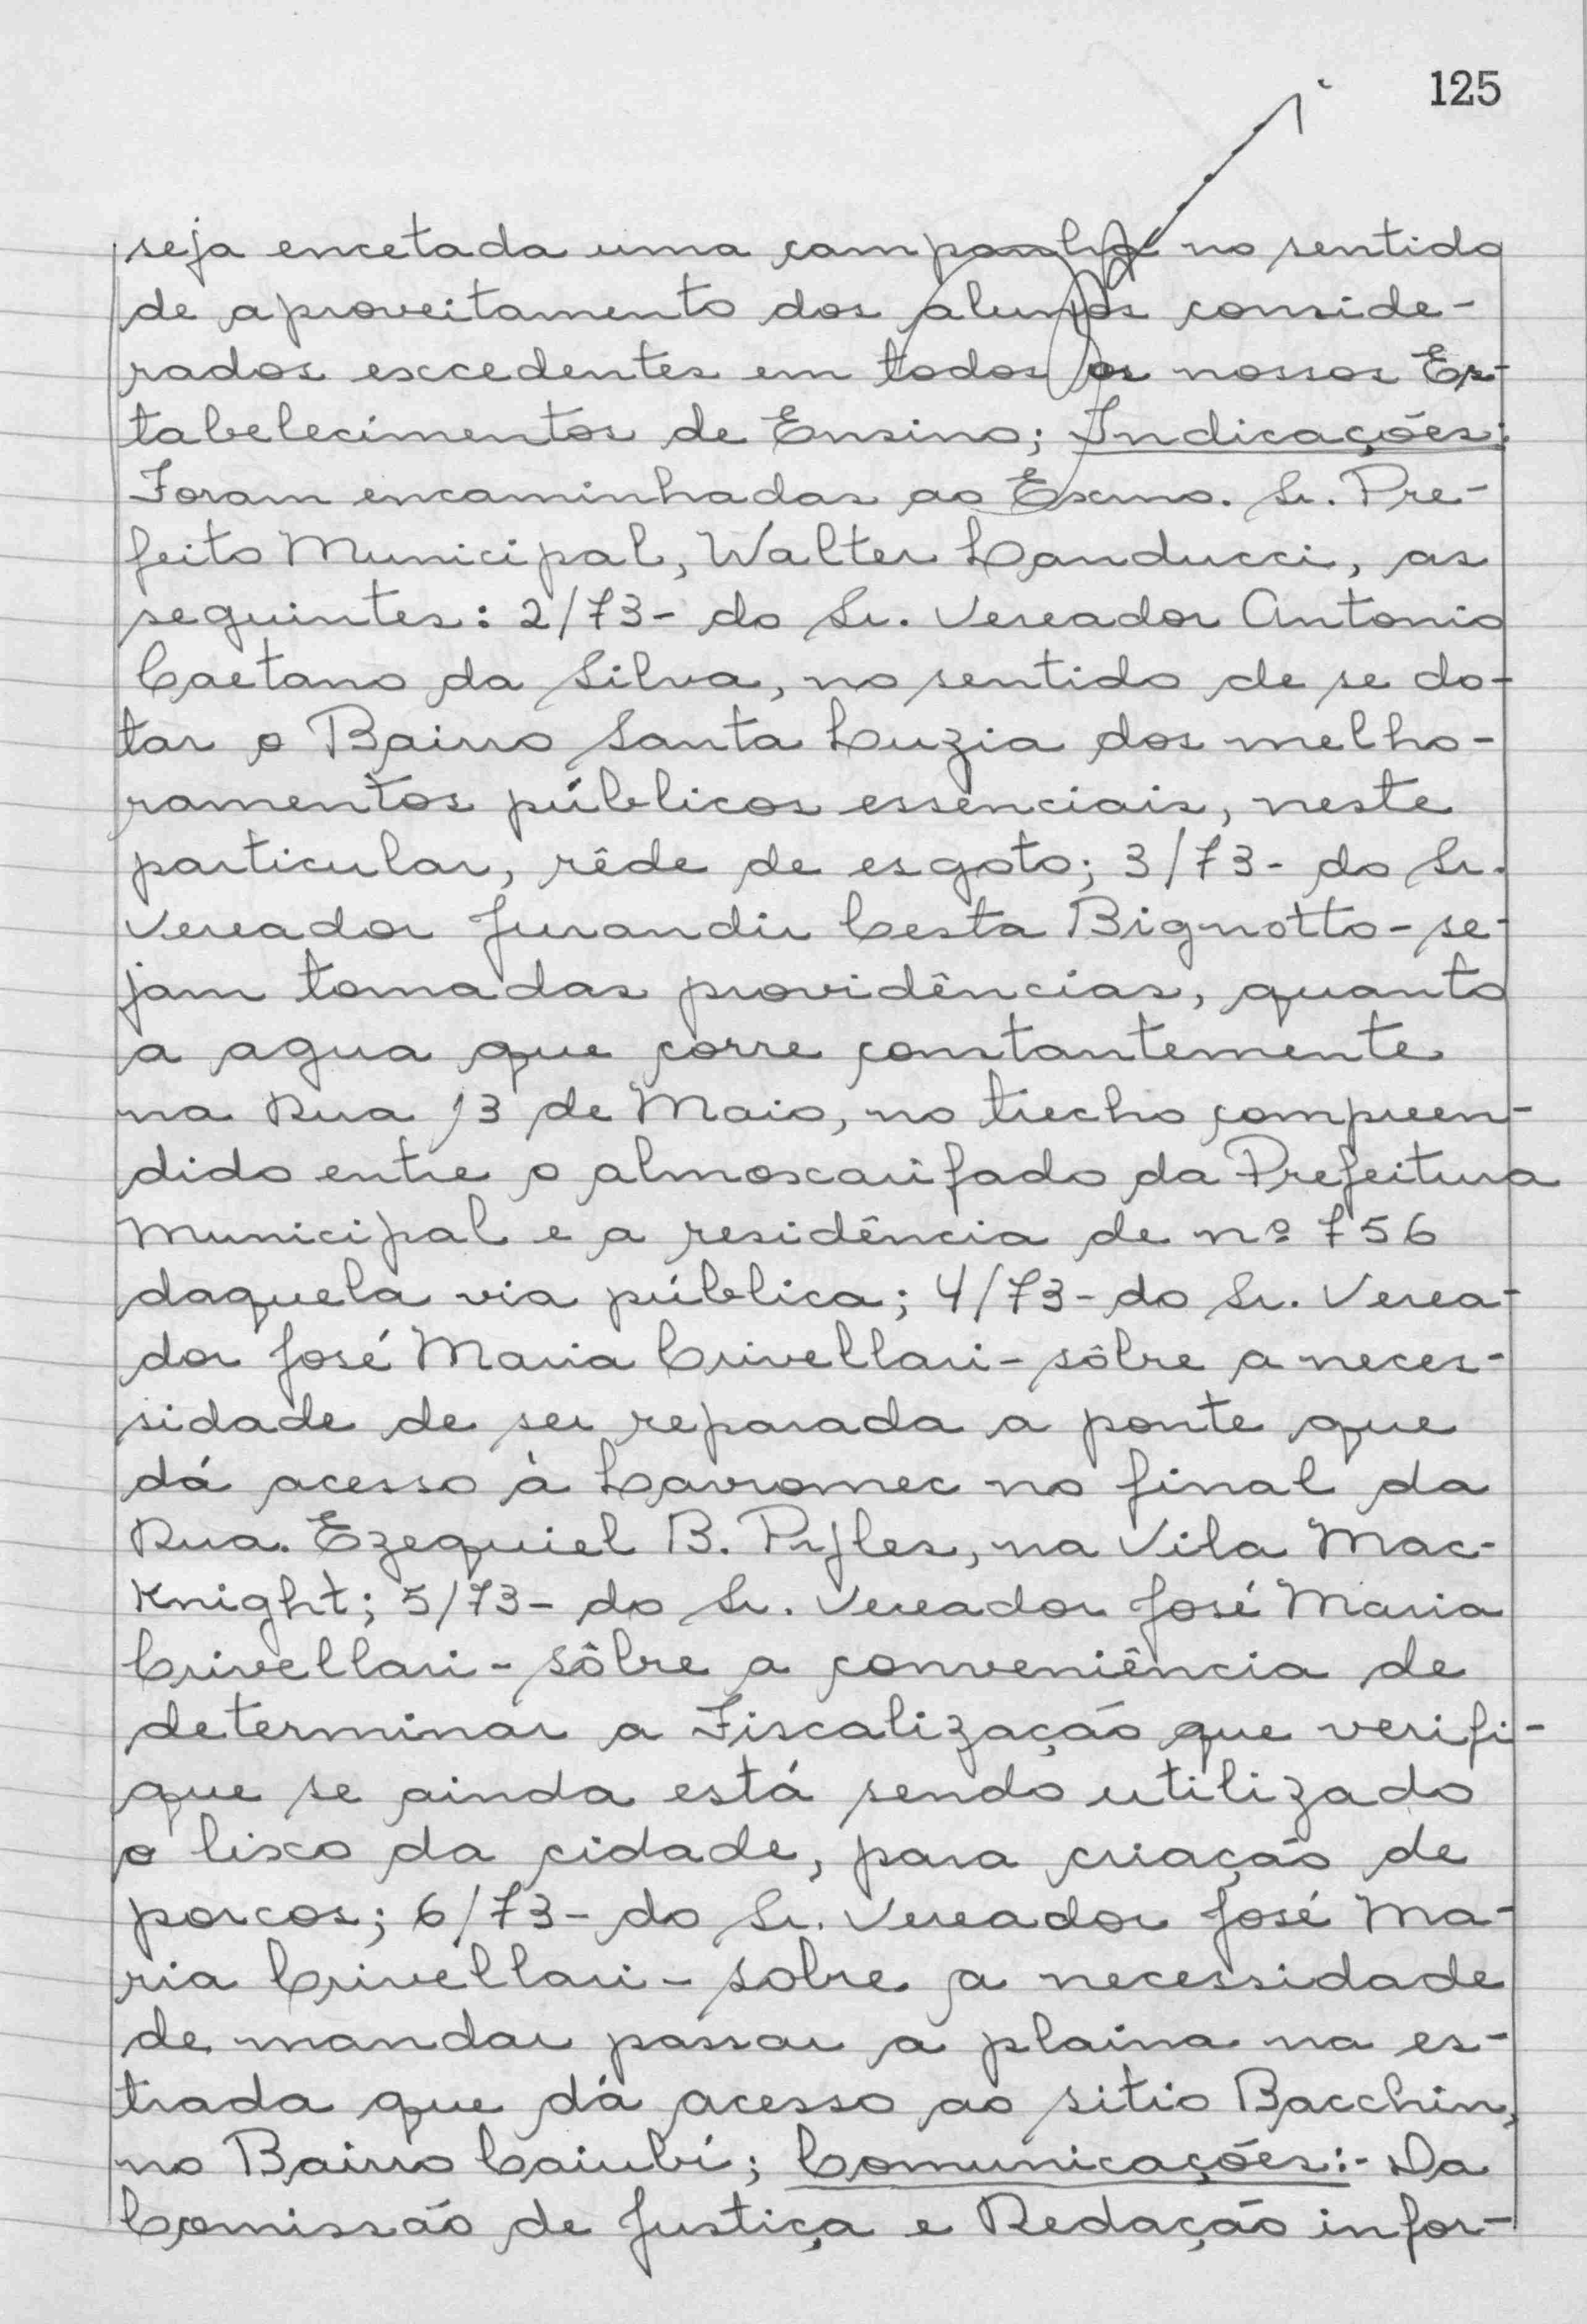 125
seja encetada uma campanha no sentido
de aproveitamento dos alunos conside-
rados excedentes em todos os nossos Es-
tabelecimentos de Ensino; Indicações:
Foram encaminhadas ao Exmo. Sr. Pre-
feito Municipal, Walter Landucci, as
seguintes: 2/73- do Sr. Vereador Antonio
Caetano da Silva, no sentido de se do-
tar o Bairro Santa Luzia dos melho-
ramentos públicos essenciais, neste
particular, rêde de esgoto; 3/73- do Sr.
Vereador Jurandir Cesta Bignotto- se-
jam tomadas providências, quanto
a agua que corre constantemente
na Rua 13 de Maio, no trecho compreen-
dido entre o almoscarifado da Prefeitura
Municipal e a residência de nº 756
daquela via pública; 4/73- do Sr. Verea-
dor José Maria Crivellari- sôbre a neces-
sidade de ser reparada a ponte que
dá acesso à Lavromec no final da
Rua. Ezequiel B. Pyles, na Vila Mac-
Knight; 5/73- do Sr. Vereador José Maria
Crivellari- sôbre a conveniência de
determinar a Fiscalização que verifi-
que se ainda está sendo utilizado
o lixo da cidade, para criação de
porcos; 6/73- do Sr. Vereador José Ma-
ria Crivellari- sobre a necessidade
de mandar passar a plaina na es-
trada que dá acesso ao sitio Bacchin,
no Bairro Caiubi; Comunicações:- Da
Comissão de Justiça e Redação infor-